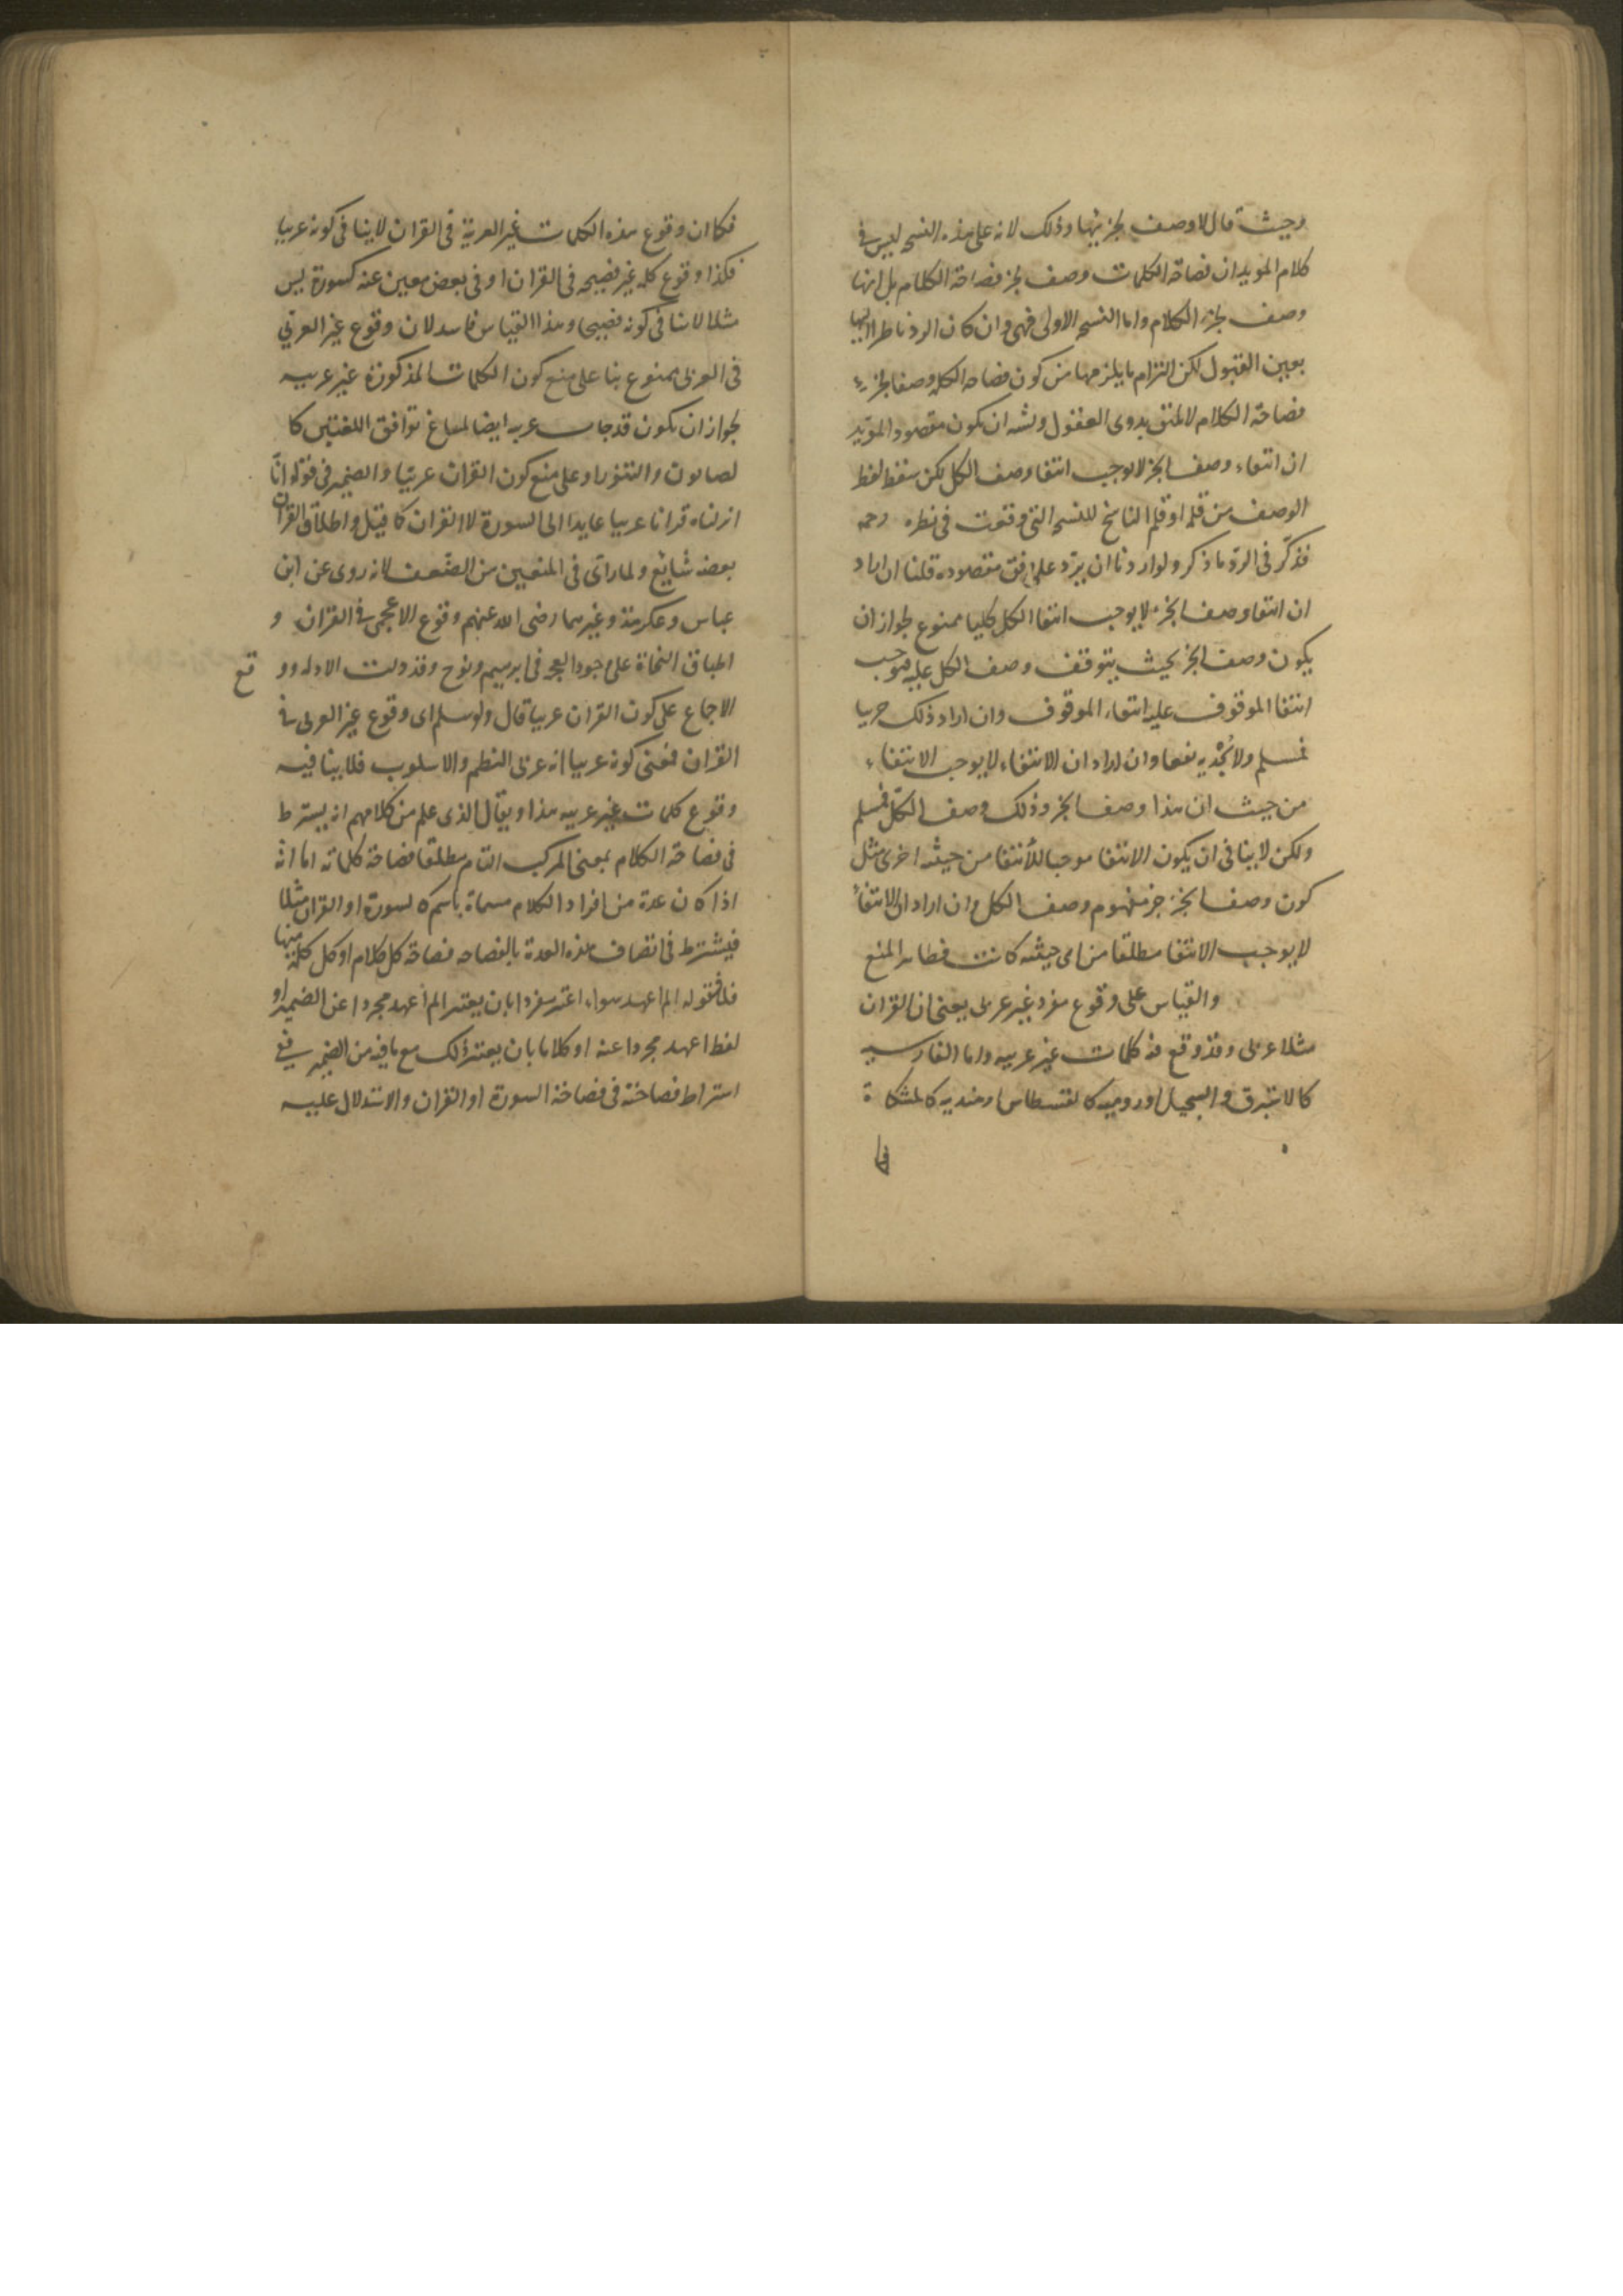 وحيث قال لا وصف لجزئيها وذلك لانه على هذه النسخه ليس في
كلام المويد ان فصاحة الكلمات وصف لجزء فصاحة الكلام بل انها
وصف لجزء الكلام واما النسخه الاولى فهي وان كان الرد ناظرا اليها
بعين القبول لكن التزام ما يلزمها من كون فصاحه الكلمه وصفا لجزء
فصاحة الكلام لا يليق بذوى العقول ويشبه ان يكون مقصود المويد
ان انتفاء وصف الجزء لا يوجب انتفا وصف الكل لكن سقط لفظ
الوصف من قلمه او قلم الناسخ للنسخه التي وقعت في نظره رحمه
فذكر في الرد ما ذكر ولو اردنا ان يرد على وفق مقصوده قلنا ان اراد
ان انتفاء وصف الجزء لا يوجب انتفا الكل كليا ممنوع لجواز ان
يكون وصف الجزء بحيث يتوقف وصف الكل عليه فيوجب
انتفا الموقوف عليه انتفاء الموقوف وان اراد ذلك جزيا
فمسلم ولا يجديه نفعا وان اراد ان الانتفاء لا يوجب الانتفاء
من حيث ان هذا وصف الجزء وذلك وصف الكل فمسلم
ولكن لا ينافى ان يكون الانتفا موجبا للانتفا من حيثيه اخرى مثل
كون وصف الجزء جزء مفهوم وصف الكل وان اراد ان الانتفاء
لا يوجب الانتفا مطلقا من اى حيثيه كانت فظاهر المنع
والقياس على وقوع مفرد غير عربى يعنى ان القران
مثلا عربى وقد وقع فيه كلمات غير عربيه واما الفارسيه
كالاستبرق والسجيل او روميه كالقسطاس او هنديه كالمشكاة
فكما ان وقوع هذه الكلمات غير العربية في القران لا ينافى كونه عربيا
فكذا وقوع كلمه غير فصيحه فى القران او فى بعض معين منه كسورة يس
مثلا لا ينافى كونه فصيحا وهذا القياس فاسد لان وقوع غير العربي
فى العربى ممنوع بنا على منع كون الكلمات المذكورة غير عربيه
لجواز ان يكون قد جات عربيه ايضا لمساغ توافق اللغتين كا
لصابون والتنور او على منع كون القران عربيا والضمير فى قوله انا
انزلناه قرانا عربيا عايدا الى السورة لا القران كما قيل واطلاق القران
بعضه شايع ولما راى فى المنعين من الضعف لانه روى عن ابن
عباس وعكرمة وغيرهما رضى الله عنهم وقوع الاعجمى فى القران و
اطباق النحاة على وجود العجمه فى ابرهيم ونوح وقد دلت الادله وو
قع
الاجماع على كون القران عربيا قال ولو سلم اى وقوع غير العربى فى
القران فمعنى كونه عربيا انه عربى النظم والاسلوب فلا ينافيه
وقوع كلمات غير عربيه هذا ويقال الذى علم من كلامهم انه يشترط
فى فصاحة الكلام بمعنى المركب التام مطلقا فصاحة كلماته اما انه
اذا كان عدة من افراد الكلام مسماة باسم كالسورة او القران مثلا
فيشترط فى اتصاف هذه العدة بالفصاحه فصاحة كل كلام او كل كلمه منها
فلا فقوله الم اعهد سواء اعتبر مفردا بان يعتبر الم اعهد مجردا عن الضمير او
لفظ اعهد مجردا عنه او كلاما بان يعتبر ذلك مع ما فيه من الضمير فمنع
اشتراط فصاحته فى فصاحة السورة او القران والاستدلال عليه